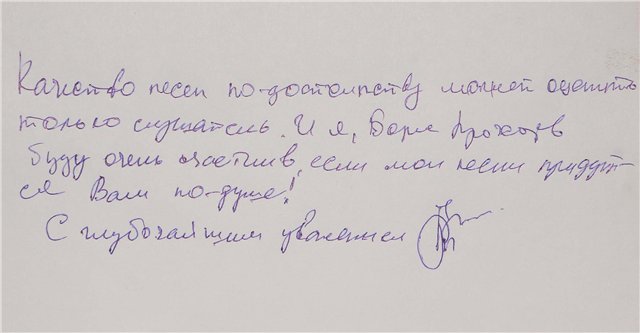 Качество песен по-достоинству может оценить
только слушатель. И я, Боря Прохоров
буду очень счастлив, если мои песни придут-
ся Вам по-душе!
С глубочайшим уважением